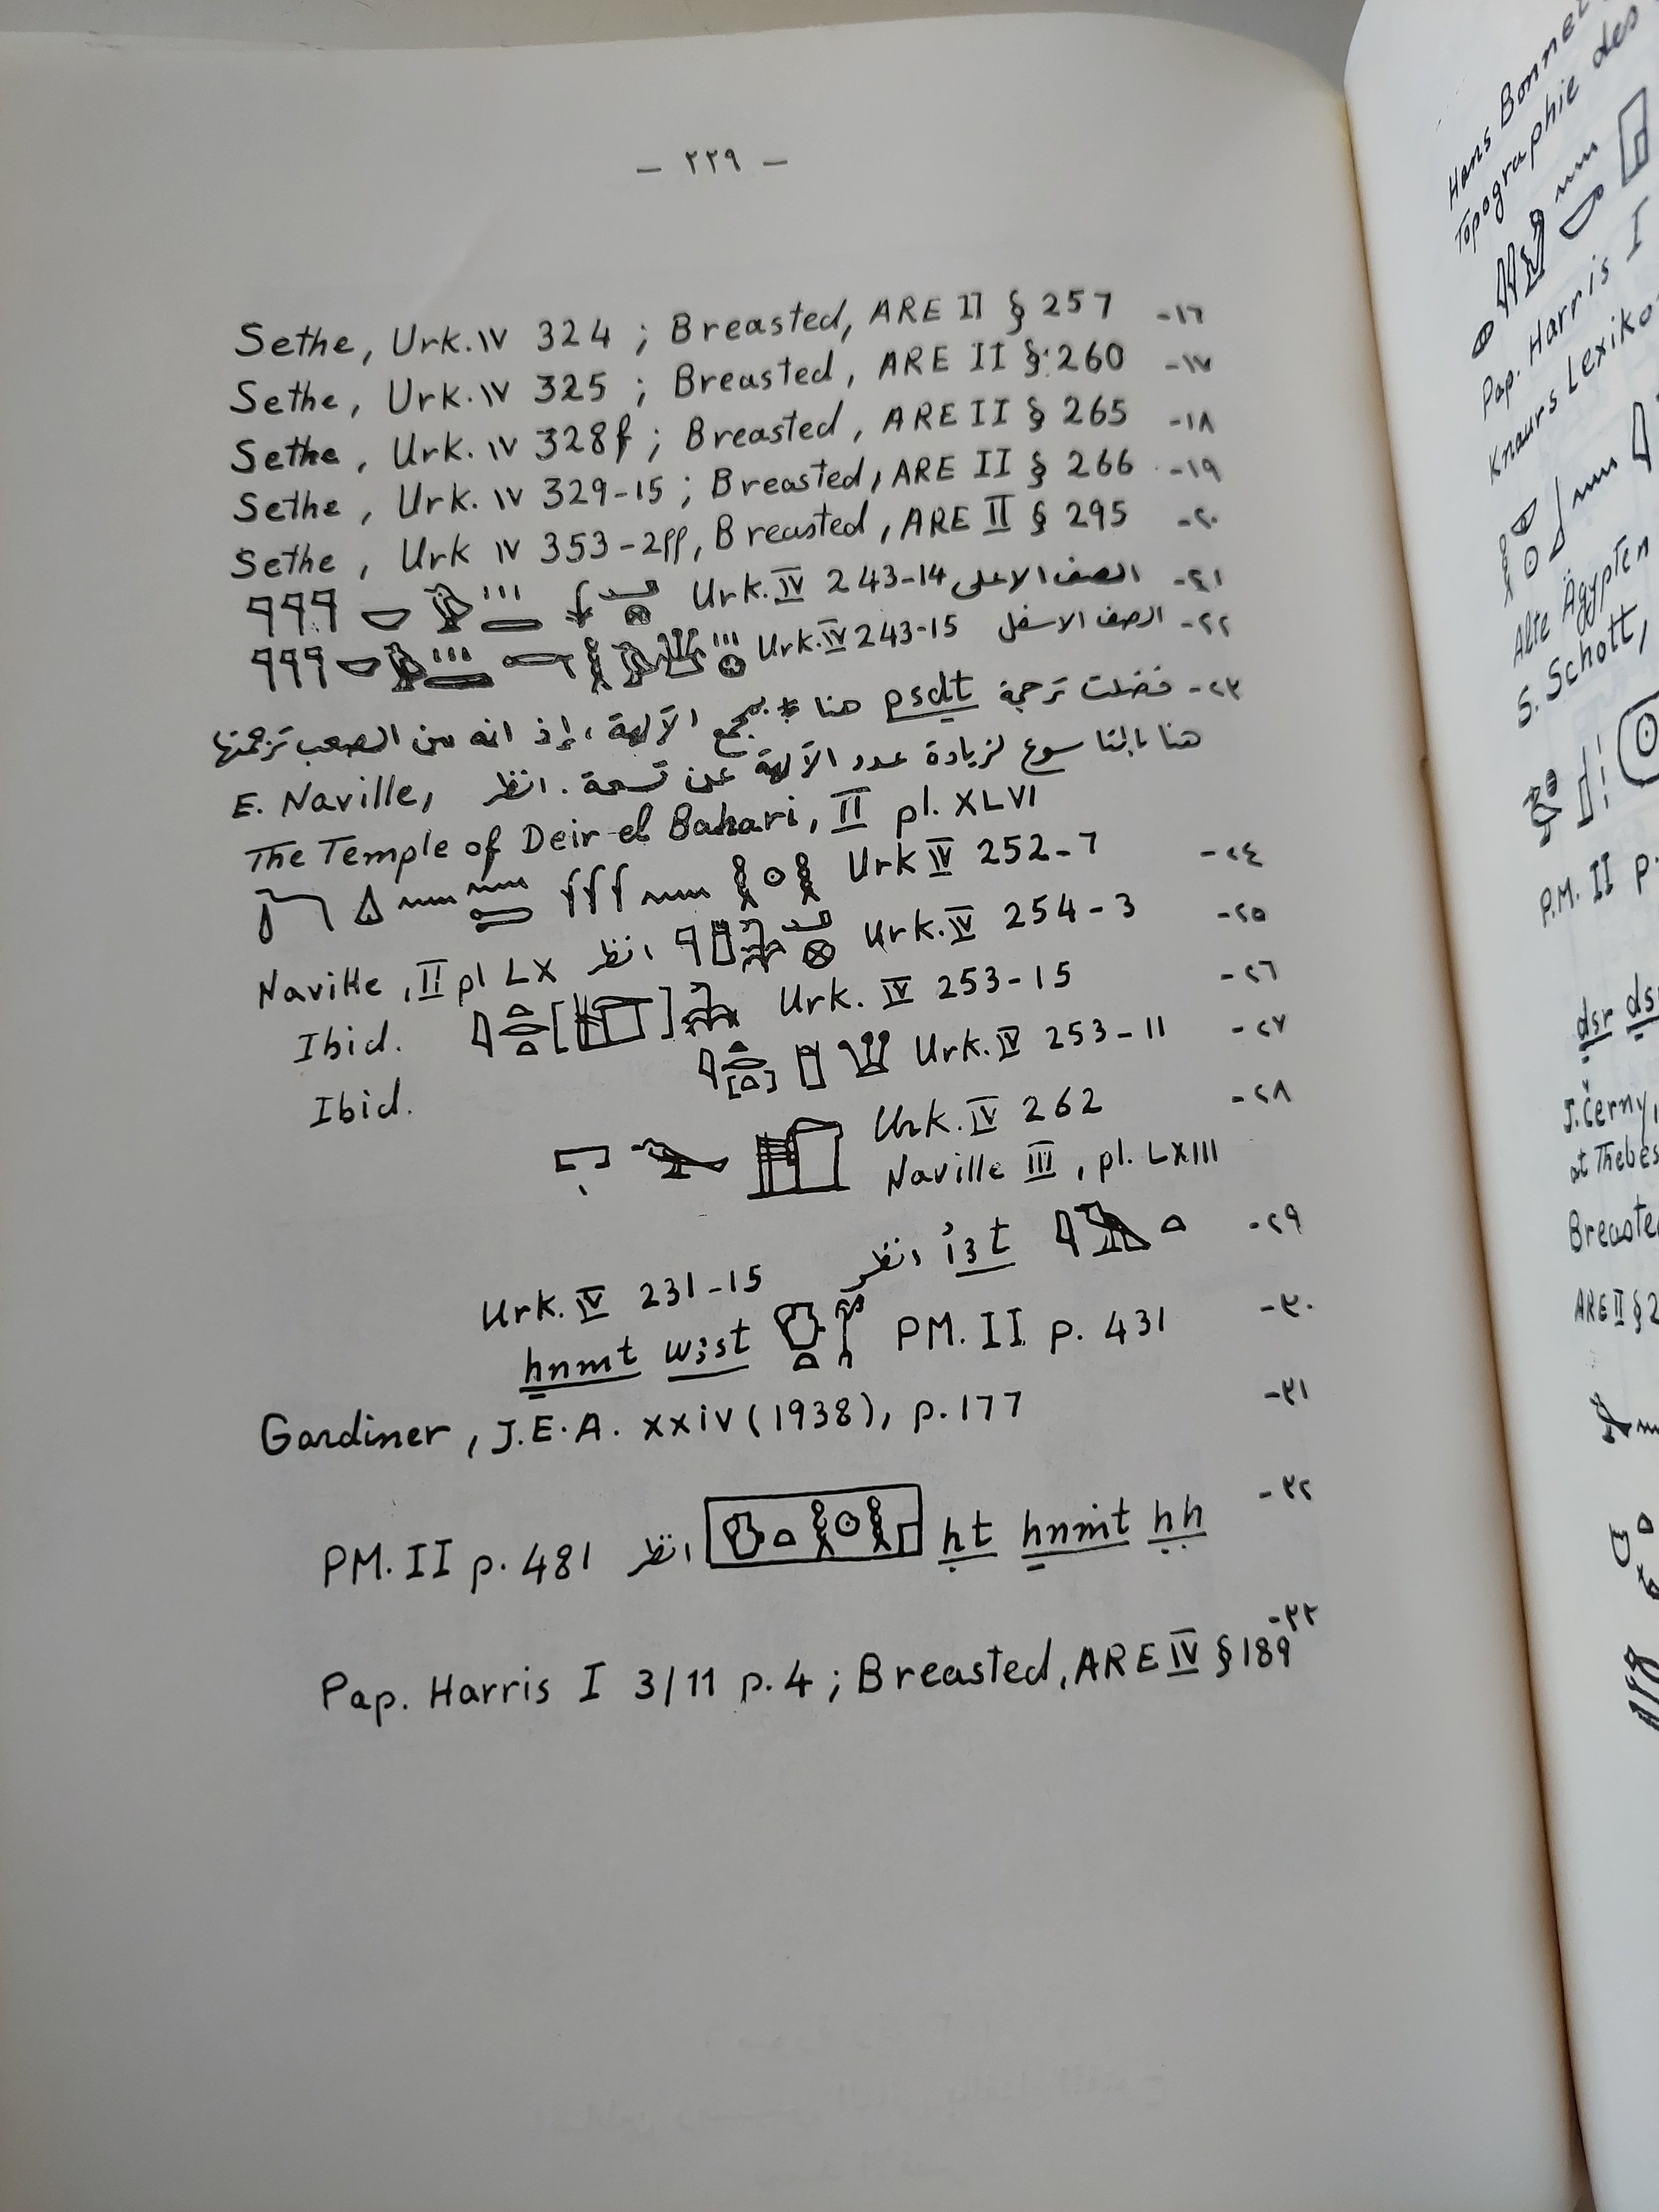 - ٢٢٩ -
Sethe, Urk. IV 324 ; Breasted, ARE II § 257 -١٦
Sethe, Urk. IV 325 ; Breasted, ARE II § 260 -١٧
Sethe, Urk. IV 328f ; Breasted, ARE II § 265 -١٨
Sethe, Urk. IV 329-15 ; Breasted, ARE II § 266 -١٩
Sethe, Urk IV 353-2ff, Breasted, ARE II § 295 -٢٠
٢١- الصف الاعلى Urk. IV 243-14
٢٢- الصف الاسفل Urk. IV 243-15
٢٣- فضلت ترجمة psdt هنا بمجمع الآلهة ، إذ انه من الصعب ترجمتها
هنا بالتاسوع لزيادة عدد الآلهة عن تسعة . انظر E. Naville,
The Temple of Deir el Bahari, II pl. XLVI
Urk IV 252-7 -٢٤
٢٥- Urk. IV 254-3 انظر Naville, II pl LX
Ibid. Urk. IV 253-15 -٢٦
Ibid. Urk. IV 253-11 -٢٧
Urk. IV 262 -٢٨
Naville III, pl. LXIII
٢٩- i3t انظر Urk. IV 231-15
ẖnmt w3st PM. II p. 431 -٣٠
Gardiner, J.E.A. XXIV (1938), p. 177 -٣١
PM. II p. 481 انظر ḥt ẖnmt ḥḥ -٣٢
Pap. Harris I 3/11 p. 4 ; Breasted, ARE IV § 189 -٣٣
Pap. Harris I
Alte Ägypten
S. Schott,
P.M. II p.
J. Černy,
at Thebes
ARE II § 2